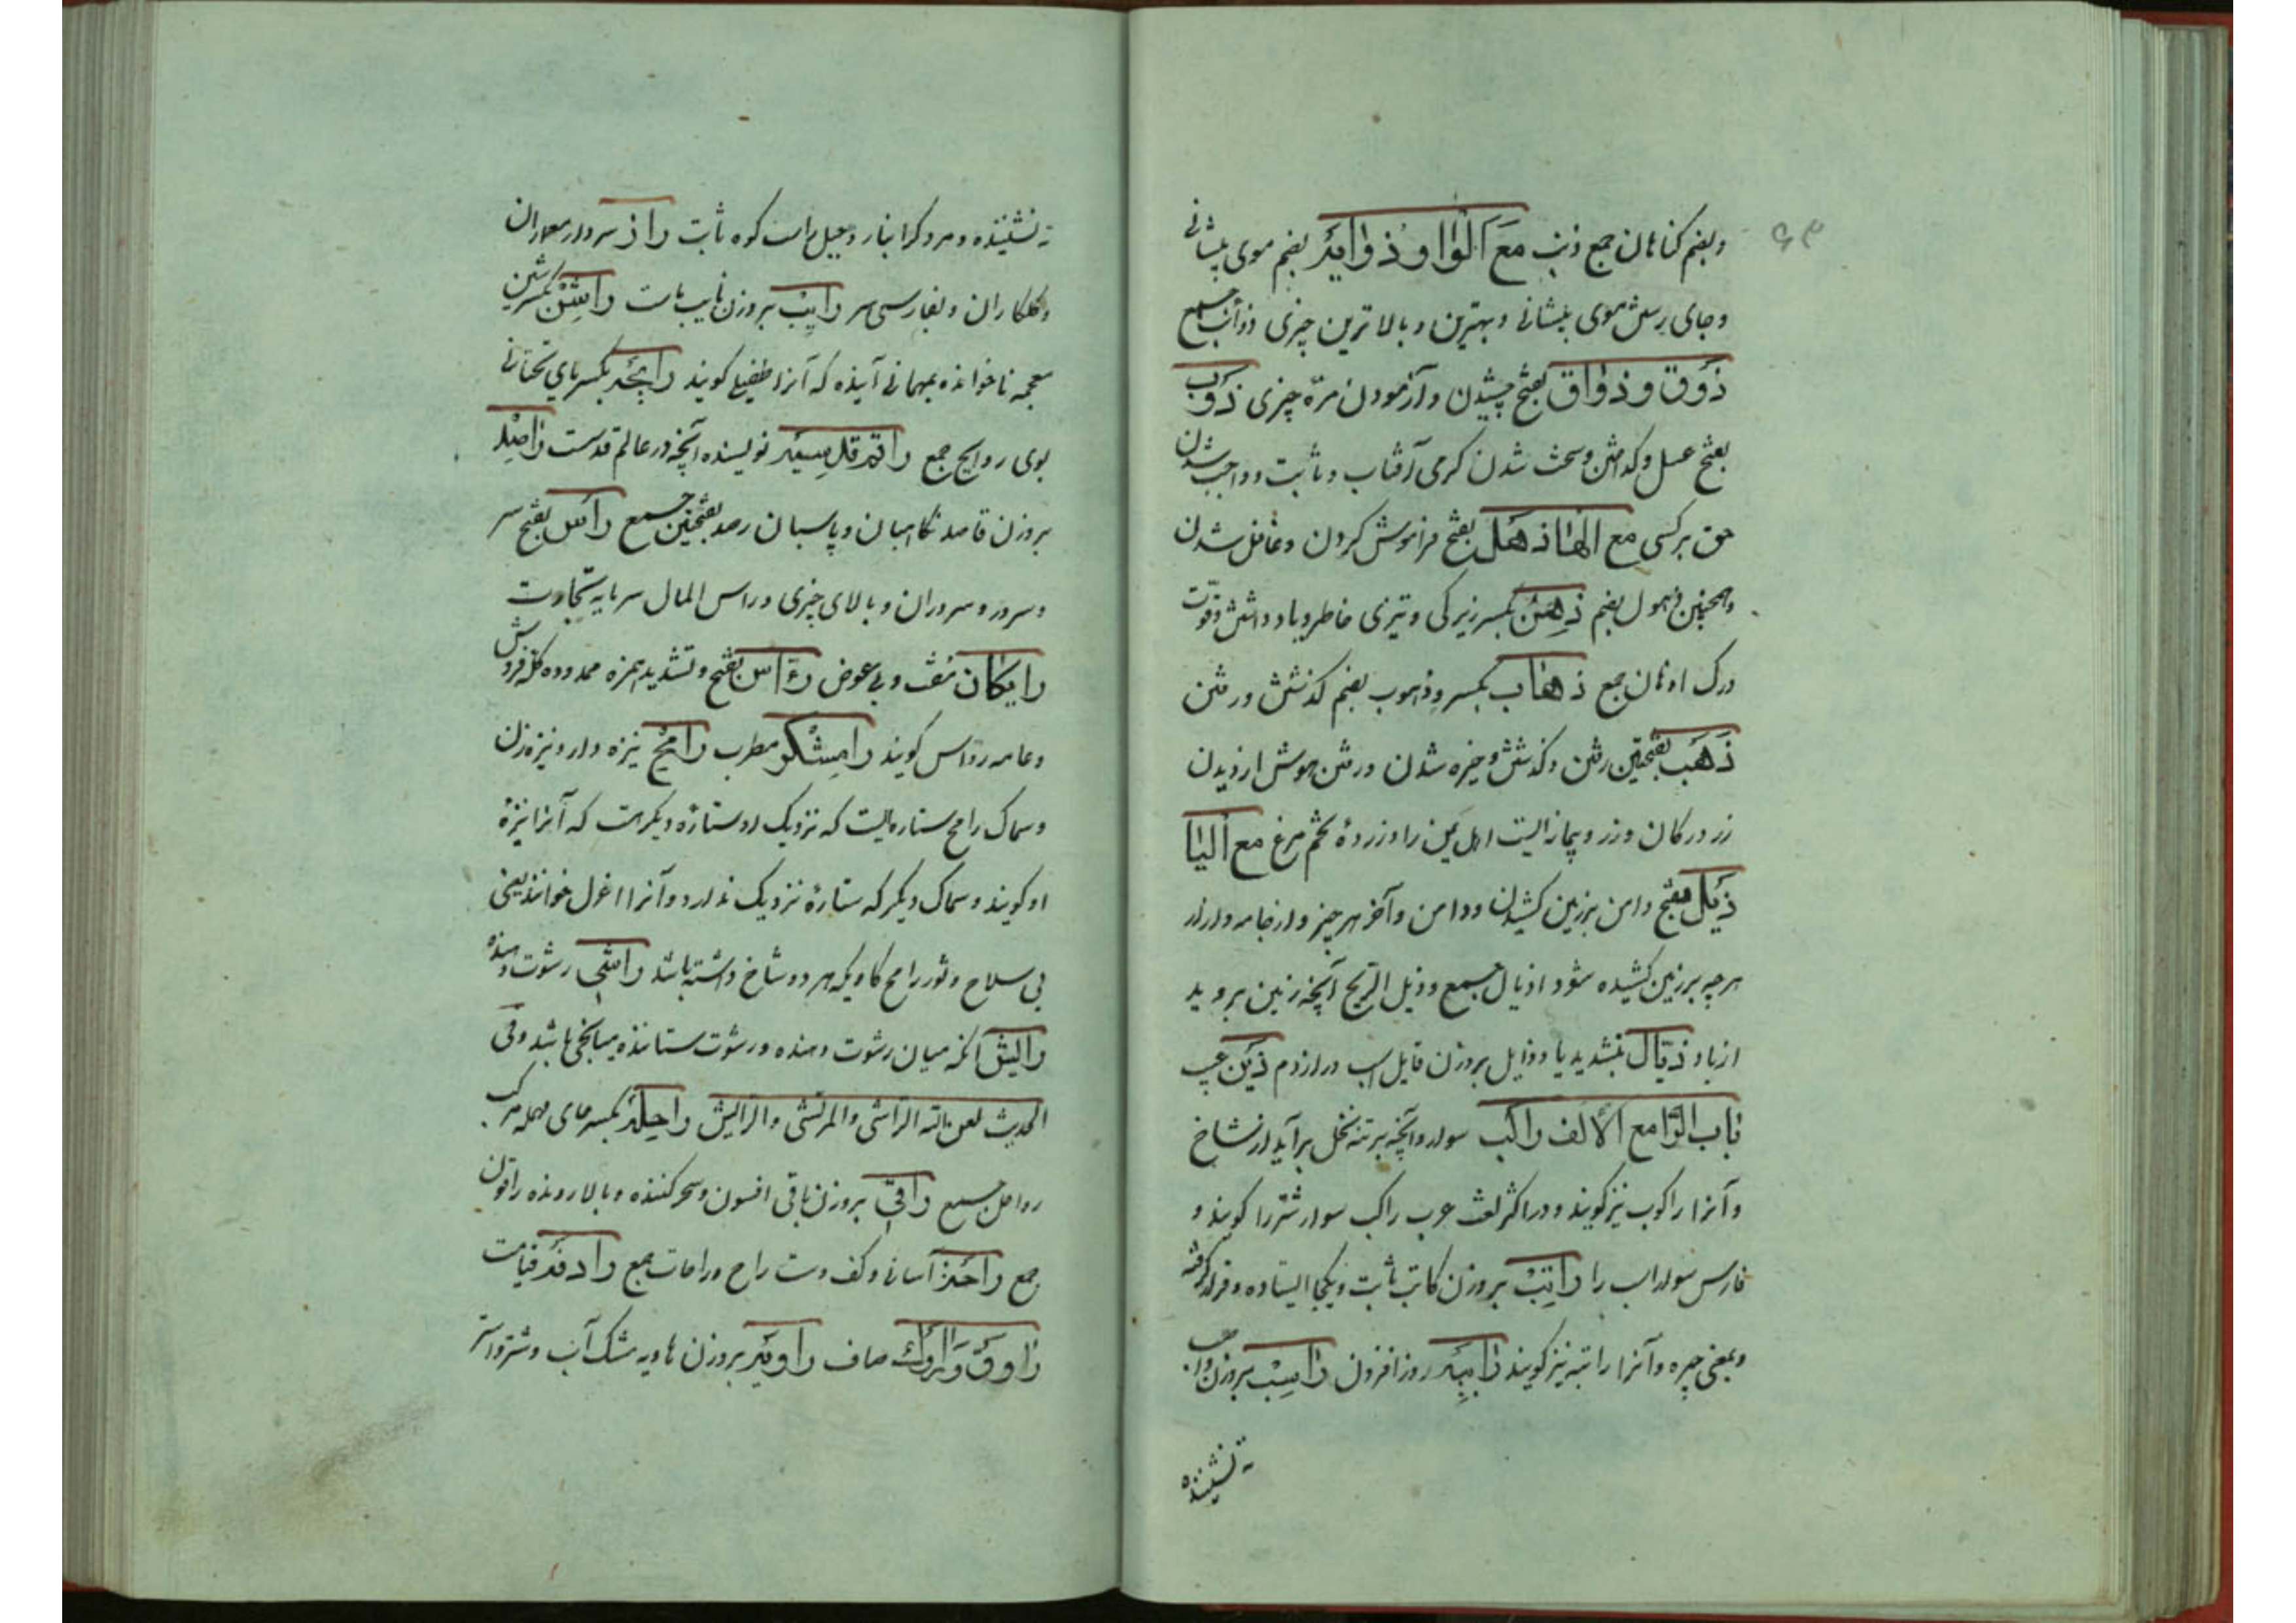 وبضم کناهان جمع ذنب مَعَ الْوٰاو ذُوٰابَهْ بضم موی پیشانی
وجای رستن موی پیشانی وبهترین وبالاترین چیزی ذوائب جمع
ذَوق وذَوٰاق بفتح چشیدن وآزمودن مزّه چیزی ذَوْب
بفتح عسل وکداختن وسخت شدن کرمی آفتاب وثابت وواجب شدن
حق برکسی مع الهٰا ذهَل بفتح فراموش کردن وغافل شدن
وهمچنین ذهول بضم ذِهْن بکسر زیرکی وتیزی خاطر ویاد داشتن وقوّت
درک اذهان جمع ذهٰاب بکسر وذهوب بضم کذشتن ورفتن
ذَهَب بفتحتین رفتن وکذشتن وخیره شدن ورفتن هوش از دیدن
زر در کان وزر وپیمانه‌ایست اهل یمن را وزردهٔ تخم مرغ مع الیٰا
ذَیْل بفتح دامن برزمین کشیدن ودامن وآخر هر چیز واز جامه وازار
هرچه برزمین کشیده شود اذیال جمع وذیل الریح آنچه زمین بروید
از باد ذَیّال بتشدید یا وذایل بروزن قایل اسب دراز دم ذَیْن عیب
بٰاب الرّا مع الالف رٰاکب سوار وآنچه برتنه نخل برآید از شاخ
وآنرا راکوب نیز کویند ودر اکثر لغت عرب راکب سوار شتر را کویند و
فارس سوار اسب را رٰاتِبْ بروزن کاتب ثابت ویکجا ایستاده وقرار کرفته
وبمعنی جیره وآنرا راتبه نیز کویند رٰابِیَه روز افزون رٰاسِبْ بروزن واجب
ته نشیننده
ته نشیننده ومرد کرانبار وجبل راست کوه ثابت رٰاز سردار معماران
وکلکاران وبفارسی سر رٰایِب بروزن نایب ماست رٰاشِنْ بکسر شین
معجمه ناخوانده بمهمانی آینده که آنرا طفیلی کویند رٰایِحَه بکسر یای تحتانی
بوی روایح جمع رٰاقم قدسیّه نویسنده آنچه در عالم قدست رٰاصِد
بروزن قاصد نکاهبان وپاسبان رصد بفتحتین جمع رَأس بفتح سر
وسرور وسروران وبالای چیزی وراس المال سرمایه تجارت
رٰایکان مفت وبی عوض رَءّاس بفتح وتشدید همزه ممدوده کله فروش
وعامه روّاس کویند رٰامِشْکَر مطرب رٰامِحْ نیزه دار ونیزه زن
وسماک رامح ستاره‌ایست که نزدیک او ستارهٔ دیکر هست که آنرا نیزهٔ
او کویند وسماک دیکر که ستارهٔ نزدیک ندارد وآنرا اعزل خوانند یعنی
بی سلاح وثور رامح کاویکه هر دو شاخ داشته باشد رٰاشی رشوت دهنده
رٰایش آنکه میان رشوت دهنده ورشوت ستاننده میانجی باشد وفی
الحدیث لعن الله الراشی والمرتشی والرایش رٰاحِلَه بکسر حای مهمله مرکب
رواحل جمع رٰاقی بروزن باقی افسون وسحر کننده وبالا رونده راقون
جمع رٰاحَة آسانی وکف دست راح وراحات جمع رٰادِفَه قیامت
رٰاوق وَرٰاوُوک صاف رٰاویَه بروزن هاویه مشک آب وشتر واستر